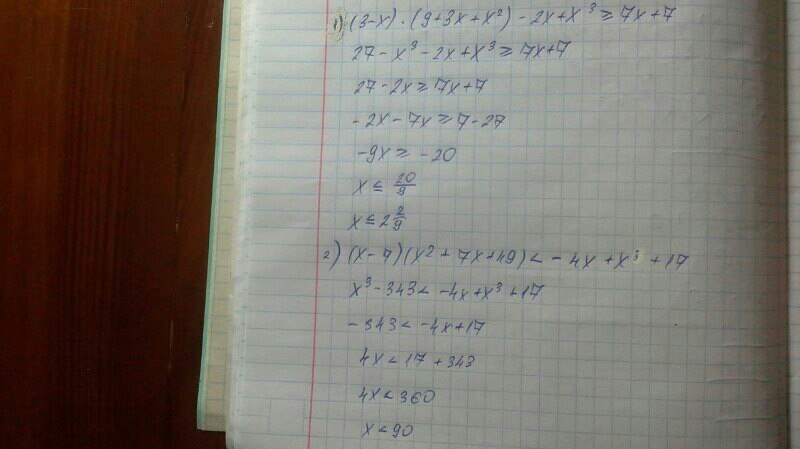 1) (3-x) · (9+3x+x²) - 2x+x³ ≥ 7x+7
27-x³-2x+x³ ≥ 7x+7
27-2x ≥ 7x+7
-2x-7x ≥ 7-27
-9x ≥ -20
x ≤ 20/9
x ≤ 2 2/9
2) (x-7)(x²+7x+49) < -4x+x³+17
x³-343 < -4x+x³+17
-343 < -4x+17
4x < 17+343
4x < 360
x < 90